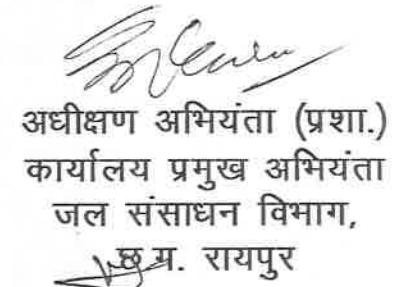 अधीक्षण अभियंता (प्रशा.)
कार्यालय प्रमुख अभियंता
जल संसाधन विभाग,
छ.ग. रायपुर